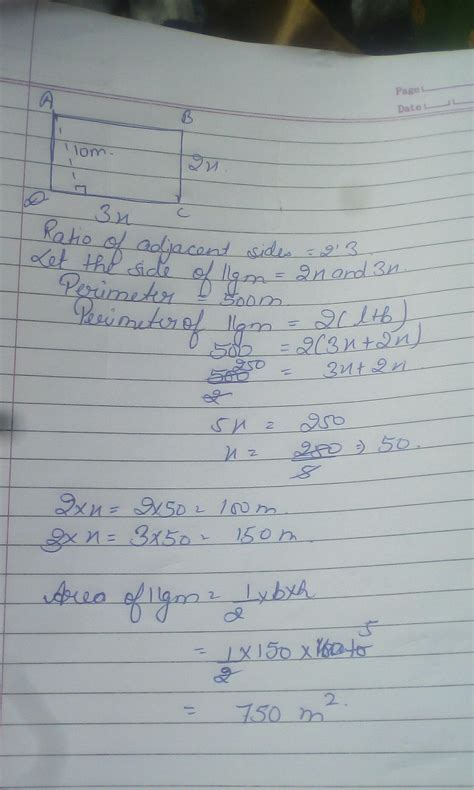 Page:
Date:
A
B
10m.
2x.
D
C
3x
Ratio of adjacent sides = 2:3
Let the side of ||gm = 2x and 3x.
Perimeter = 500m
Perimeter of ||gm = 2(l+b)
500 = 2(3x+2x)
500 250 = 3x+2x
2
5x = 250
x = 250 ⇒ 50.
5
2×x = 2×50 = 100 m.
3×x = 3×50 = 150 m.
Area of ||gm = 1/2 ×b×h
= 1/2 ×150 × 10 5
= 750 m².